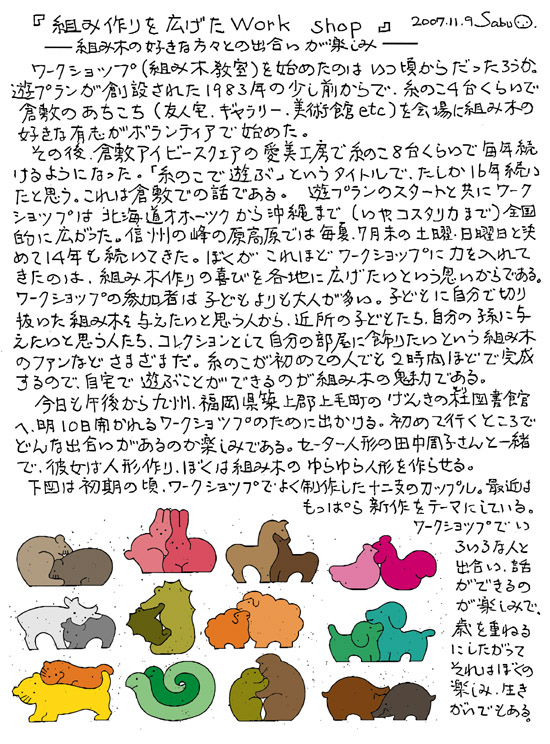 『組み作りを広げた Work shop 』 2007.11.9 Sabu
— 組み木の好きな方々との出合いが楽しみ —
ワークショップ(組み木教室)を始めたのはいつ頃からだったろうか。
遊プランが創設された1983年の少し前からで、糸のこ4台くらいで
倉敷のあちこち(友人宅、ギャラリー、美術館etc)を会場に組み木の
好きな有志がボランティアで始めた。
その後、倉敷アイビースクェアの愛美工房で糸のこ8台くらいで毎年続
けるようになった。「糸のこで遊ぶ」というタイトルで、たしか16年続い
たと思う。これは倉敷での話である。 遊プランのスタートと共にワーク
ショップは北海道オホーツクから沖縄まで(いやコスタリカまで)全国
的に広がった。信州の峰の原高原では毎夏、7月末の土曜・日曜日と決
めて14年も続いてきた。ぼくがこれほどワークショップに力を入れて
きたのは、組み木作りの喜びを各地に広げたいという思いからである。
ワークショップの参加者は子どもよりも大人が多い。子どもに自分で切り
抜いた組み木を与えたいと思う人から、近所の子どもたち、自分の孫に与
えたいと思う人たち、コレクションとして自分の部屋に飾りたいという組み木
のファンなどさまざまだ。糸のこが初めての人でも2時間ほどで完成
するので、自宅で遊ぶことができるのが組み木の魅力である。
今日も午後から九州、福岡県築上郡上毛町のげんきの杜図書館
へ、明10日開かれるワークショップのために出かける。初めて行くところで
どんな出合いがあるのか楽しみである。セーター人形の田中周子さんと一緒
で、彼女は人形作り、ぼくは組み木のゆらゆら人形を作らせる。
下図は初期の頃、ワークショップでよく制作した十二支のカップル。最近は
もっぱら新作をテーマにしている。
ワークショップでい
ろいろな人と
出合い、話
ができるの
が楽しみで、
歳を重ねる
にしたがって
それはぼくの
楽しみ、生き
がいでもある。